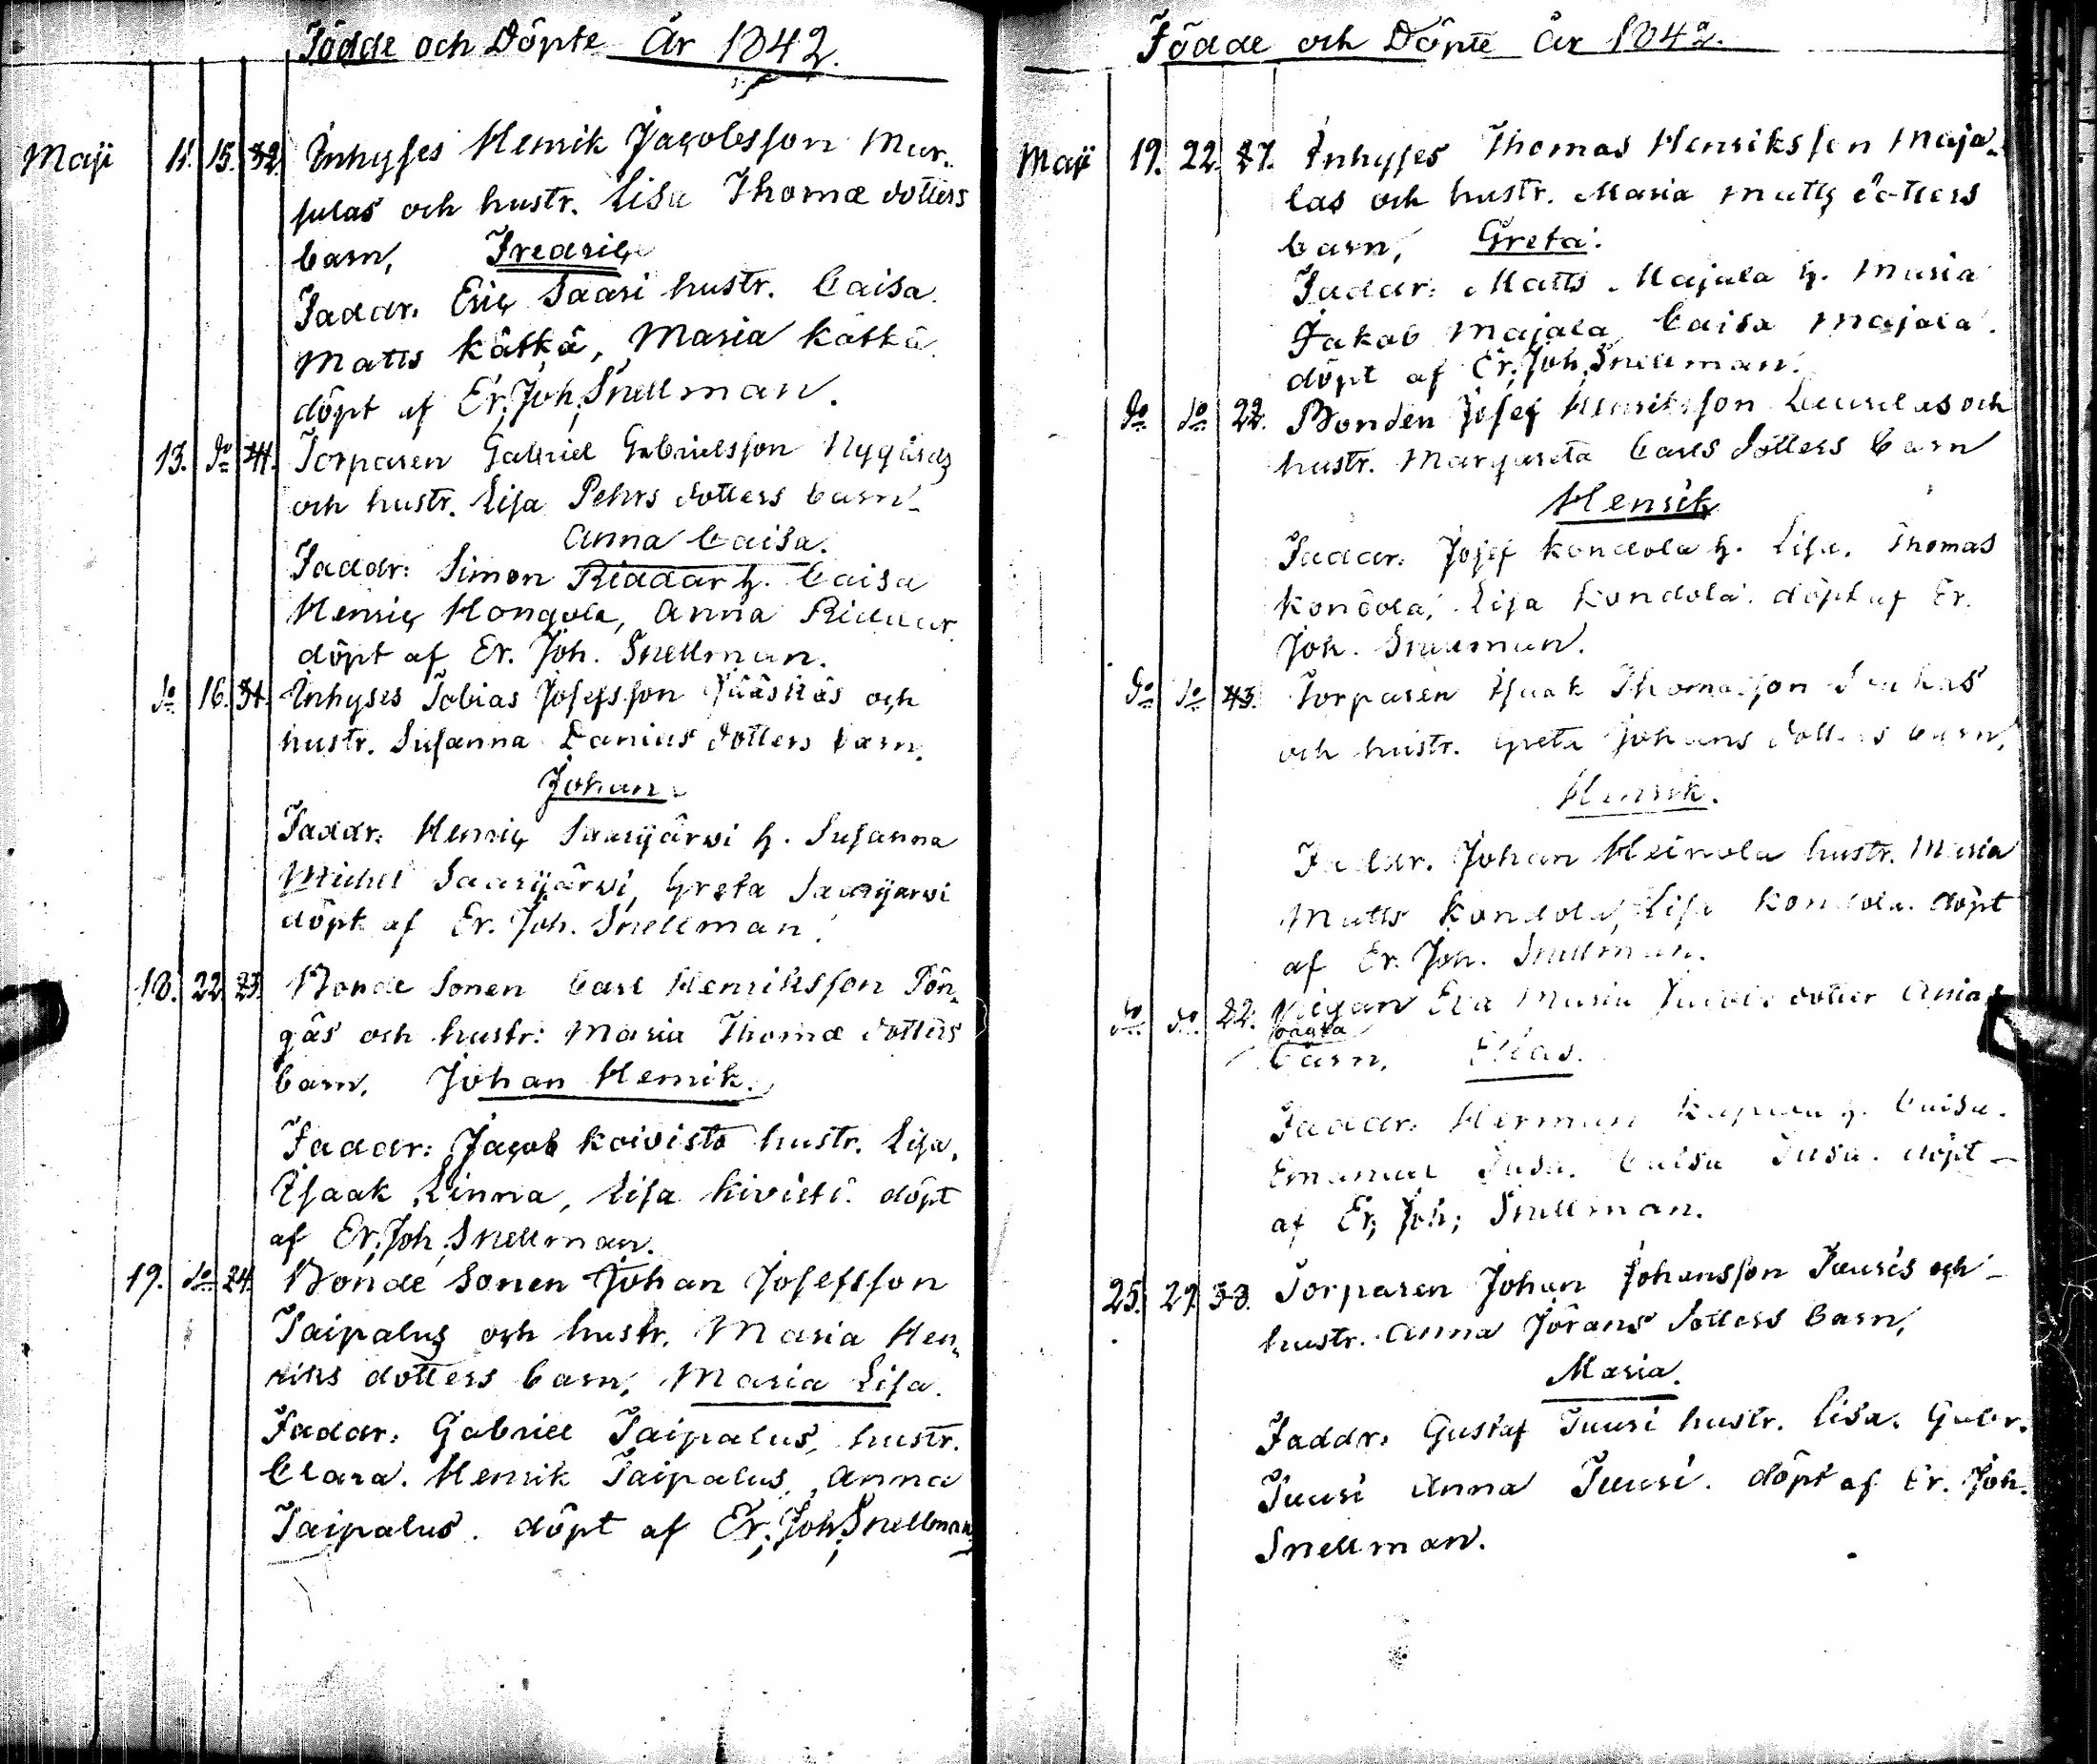 Födde och Döpte År 1842.
Maji 11. 15. 32. Inhyses Henrik Jacobsson Mur-
sulas och hustr. Lisa Thomæ dotters
barn, Fredric
Faddr. Eric Saari hustr. Caisa.
Matts Kätkä, Maria Kätkä.
döpt af Er. Joh. Snellman.
13. do 41. Torparen Gabriel Gabrielsson Nygårds
och hustr. Lisa Pehrs dotters barn
Anna Caisa.
Faddr: Simon Riddar h. Caisa
Henric Hongola, Anna Riddar
döpt af Er. Joh. Snellman.
do 16. 31. Inhyses Tobias Josefsson Jääskäs och
hustr. Susanna Daniels dotters barn.
Johan.
Faddr: Henric Saarijärwi h. Susanna
Michel Saarijärwi, Greta Saarijarwi
döpt af Er. Joh. Snellman.
18. 22. 23. Bonde Sonen Carl Henriksson Pön-
gäs och hustr: Maria Thomæ dotters
barn, Johan Henrik.
Faddr: Jacob Koivisto hustr. Lisa,
Isaak Linna, Lisa Kivistö. döpt
af Er. Joh. Snellman.
19. do 24. Bonde Sonen Johan Josefsson
Taipalus och hustr. Maria Hen-
riks dotters barn, Maria Lisa.
Faddr: Gabriel Taipalus, hustr.
Clara. Henrik Taipalus, Anna
Taipalus. döpt af Er. Joh. Snellman
Födde och Döpte År 1842.
Maji 19. 22. 27. Inhyses Thomas Henriksson Maja-
las och hustr. Maria Matts dotters
barn, Greta.
Faddr: Matts Majala h. Maria
Jakob Majala Caisa Majala.
döpt af Er. Joh. Snellman.
do do 22. Bonden Josef Henriksson och
hustr. Margareta Carls dotters barn
Henrik
Faddr. Josef Kondola h. Lisa. Thomas
Kondola, Lisa Kondola. döpt af Er.
Joh. Snellman.
do do 43. Torparen Isaak Thomasson
och hustr. Greta Johans dotters barn,
Henrik.
Faddr. Johan Heinola hustr. Maria
Matts Kondola, Lisa Kondola. döpt
af Er. Joh. Snellman.
do do 22. Pigan Eva Maria dotter
oägta
barn, Elias.
Faddr: Herman h. Caisa.
Emanuel Caisa döpt
af Er; Joh; Snellman.
25. 29. 38. Torparen Johan Johansson Juuris och
hustr. Anna Jörans dotters barn,
Maria.
Faddr: Gustaf Juuri hustr. Lisa. Gabr.
Juuri Anna Juuri. döpt af Er. Joh.
Snellman.